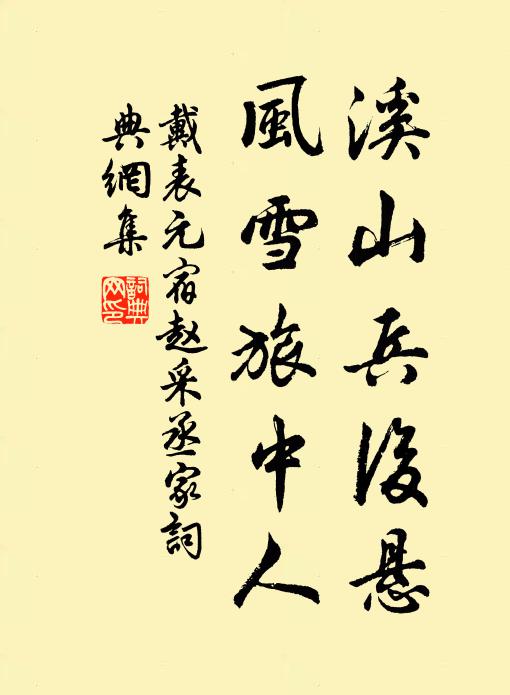 溪山兵後悬
風雪旅中人
戴表元宿赵采丞家詞
典網集
詞典网印